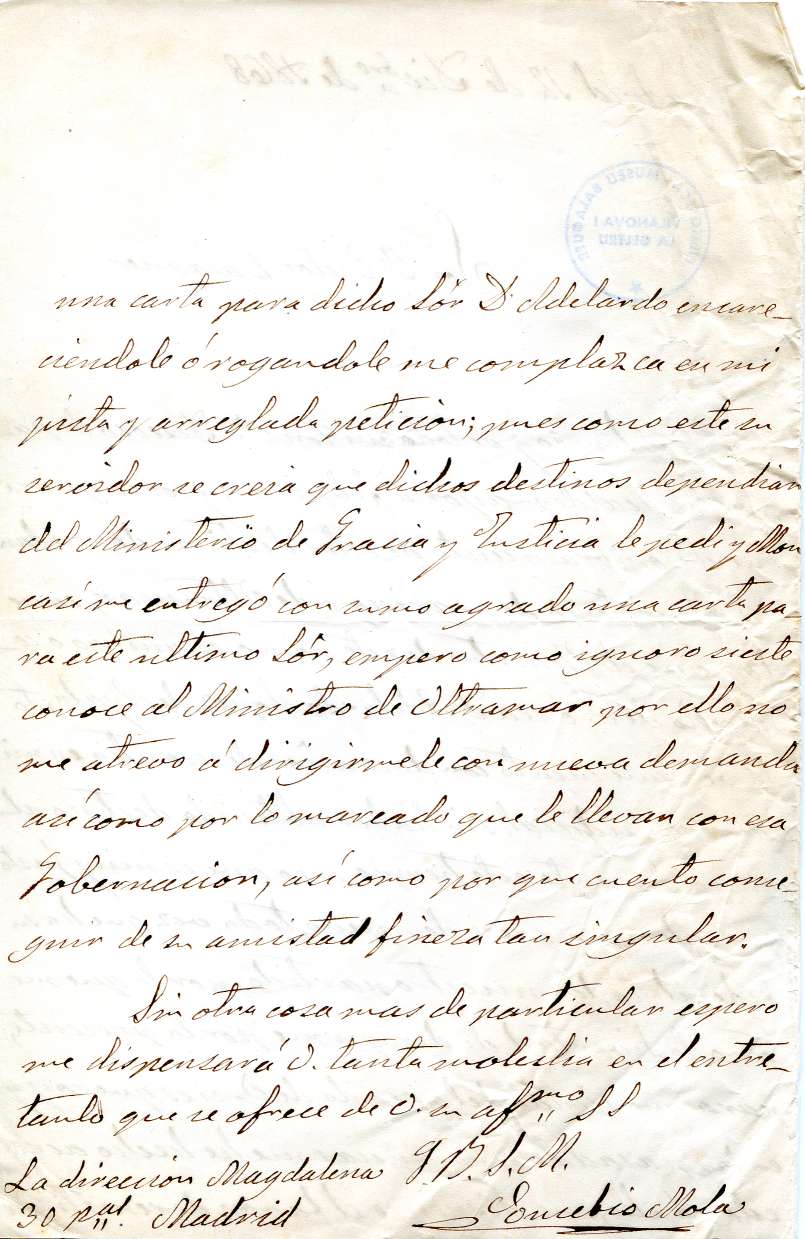 una carta para dicho Sór Dn Adelardo encare-
ciendole ó rogandole me complazca en mi
justa y arreglada peticion; pues como este su
servidor se creia que dichos destinos dependian
del Ministerio de Gracia y Justicia le pedi y Mon
casi me entregó con sumo agrado una carta pa-
ra este ultimo Sór, empero como ignoro si este
conoce al Ministro de Ultramar por ello no
me atrevo á dirigirmele con nueva demanda
asi como por lo mareado que le llevan con esa
Gobernacion, asi como por que cuento conse-
guir de su amistad fineza tan singular.
Sin otra cosa mas de particular espero
me dispensará V. tanta molestia en el entre-
tanto que se ofrece de V. su afmo SS
Q.B.S.M.
Eusebio Mola
La dirección Magdalena
30 pal. Madrid
VILANOVA I
LA GELTRU